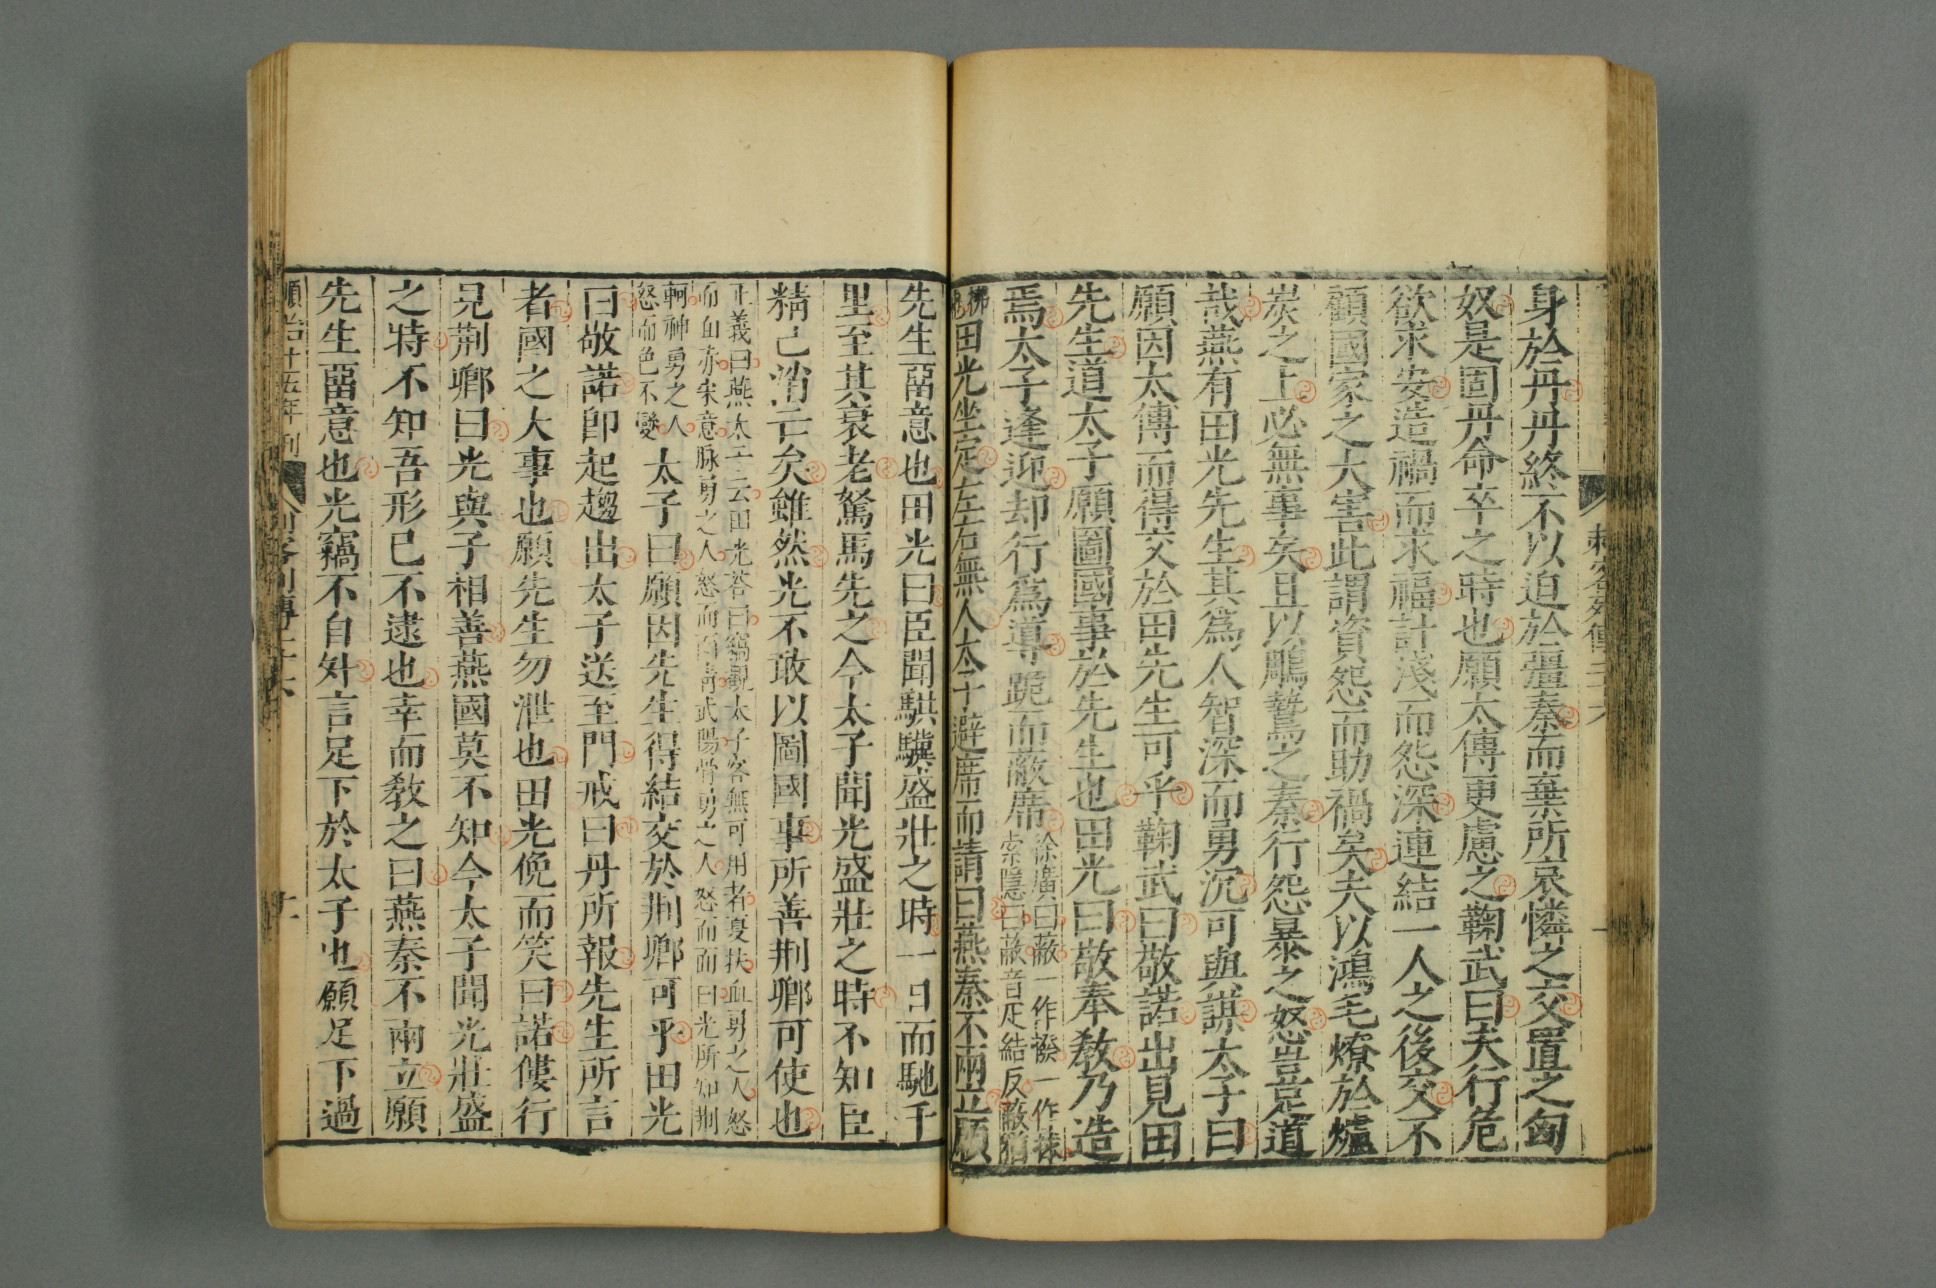 身於丹丹終不以迫於彊秦而棄所哀憐之交置之匈
奴是固丹命卒之時也願太傅更慮之鞠武曰夫行危
欲求安造禍而求福計淺而怨深連結一人之後交不
顧國家之大害此謂資怨而助禍矣夫以鴻毛燎於爐
炭之上必無事矣且以鵰鷙之秦行怨暴之怒豈足道
哉燕有田光先生其爲人智深而勇沉可與謀太子曰
願因太傅而得交於田先生可乎鞠武曰敬諾出見田
先生道太子願圖國事於先生也田光曰敬奉教乃造
焉太子逢迎却行爲導跪而蔽席
徐廣曰蔽一作撥一作拔
索隱曰蔽音疋結反蔽猶
拂也
田光坐定左右無人太子避席而請曰燕秦不兩立願
先生畱意也田光曰臣聞騏驥盛壯之時一日而馳千
里至其衰老駑馬先之今太子聞光盛壯之時不知臣
精已消亡矣雖然光不敢以圖國事所善荆卿可使也
正義曰燕太子云田光荅曰竊觀太子客無可用者夏扶血勇之人怒
而面赤宋意脉勇之人怒而面青武陽骨勇之人怒而面白光所知荆
軻神勇之人
怒而色不變
太子曰願因先生得結交於荆卿可乎田光
曰敬諾卽起趨出太子送至門戒曰丹所報先生所言
者國之大事也願先生勿泄也田光俛而笑曰諾僂行
見荆卿曰光與子相善燕國莫不知今太子聞光壯盛
之時不知吾形已不逮也幸而教之曰燕秦不兩立願
先生畱意也光竊不自外言足下於太子也願足下過
順治十五年刊
列傳二十六
十一